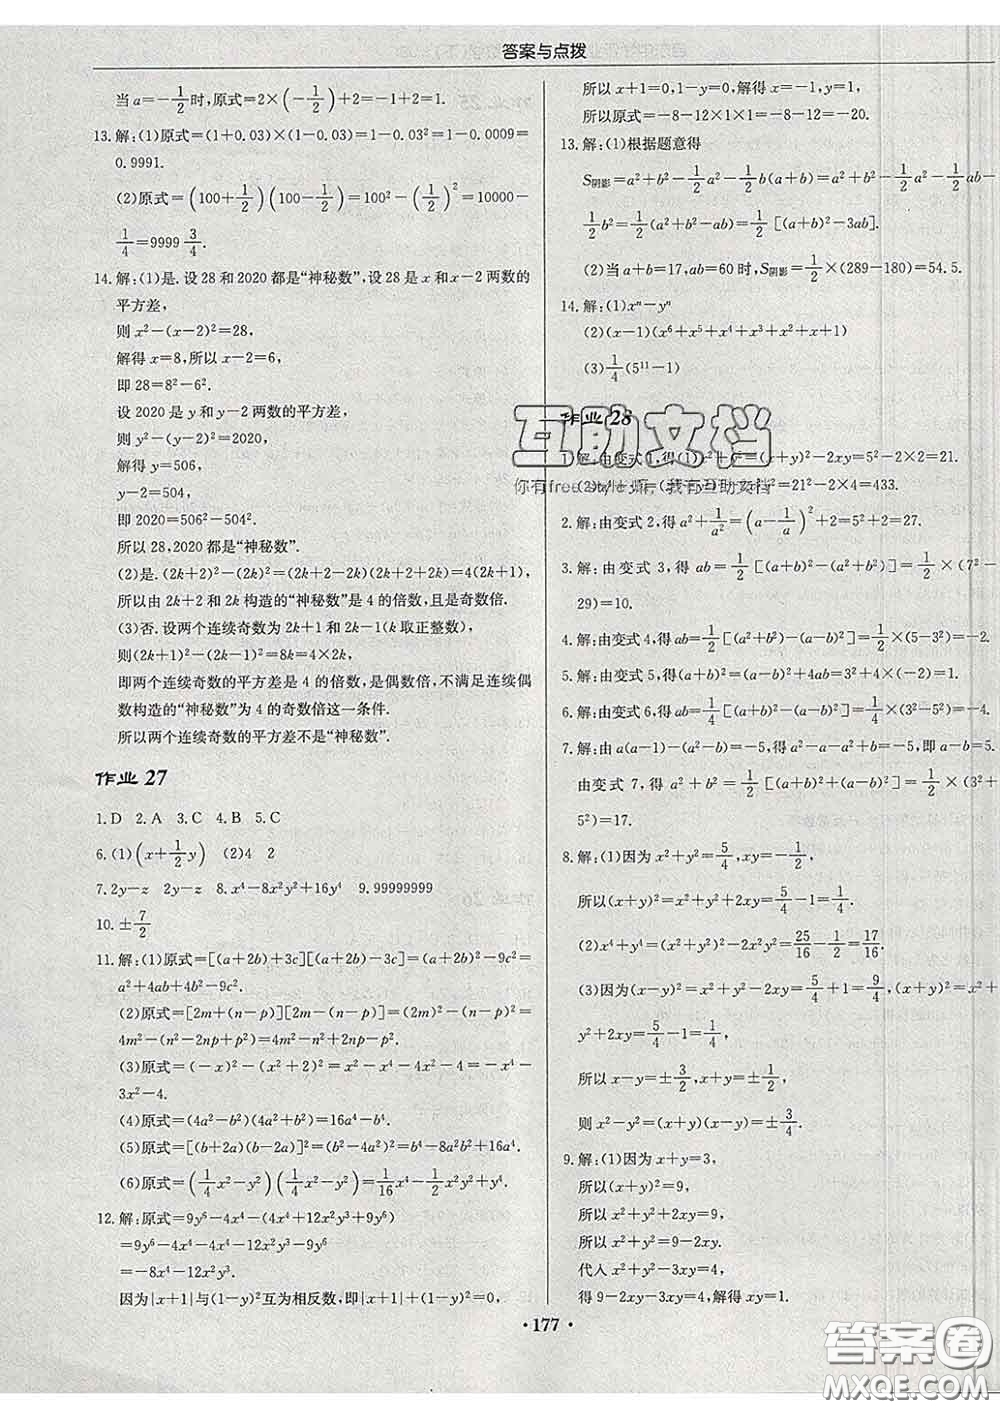 答案与点拨
当a=-1/2时,原式=2×(-1/2)+2=-1+2=1.
13.解:(1)原式=(1+0.03)×(1-0.03)=1-0.03²=1-0.0009=
0.9991.
(2)原式=(100+1/2)(100-1/2)=100²-(1/2)²=10000-
1/4=9999 3/4.
14.解:(1)是.设28和2020都是“神秘数”,设28是x和x-2两数的
平方差,
则x²-(x-2)²=28,
解得x=8,所以x-2=6,
即28=8²-6².
设2020是y和y-2两数的平方差,
则y²-(y-2)²=2020,
解得y=506,
y-2=504,
即2020=506²-504².
所以28,2020都是“神秘数”.
(2)是.(2k+2)²-(2k)²=(2k+2-2k)(2k+2+2k)=4(2k+1),
所以由2k+2和2k构造的“神秘数”是4的倍数,且是奇数倍.
(3)否.设两个连续奇数为2k+1和2k-1(k取正整数),
则(2k+1)²-(2k-1)²=8k=4×2k,
即两个连续奇数的平方差是4的倍数,是偶数倍,不满足连续偶
数构造的“神秘数”为4的奇数倍这一条件.
所以两个连续奇数的平方差不是“神秘数”.
作业27
1.D 2.A 3.C 4.B 5.C
6.(1)(x+1/2y) (2)4 2
7.2y-z 2y-z 8.x⁴-8x²y²+16y⁴ 9.99999999
10.±7/2
11.解:(1)原式=[(a+2b)+3c][(a+2b)-3c]=(a+2b)²-9c²=
a²+4ab+4b²-9c².
(2)原式=[2m+(n-p)][2m-(n-p)]=(2m)²-(n-p)²=
4m²-(n²-2np+p²)=4m²-n²+2np-p².
(3)原式=(-x)²-(x²+2)²=x²-x⁴-4x²-4=-x⁴-
3x²-4.
(4)原式=(4a²-b²)(4a²+b²)=16a⁴-b⁴.
(5)原式=[(b+2a)(b-2a)]²=(b²-4a²)²=b⁴-8a²b²+16a⁴.
(6)原式=(1/4x²-y²)(1/4x²-y²)=1/16x⁴-1/2x²y²+y⁴.
12.解:原式=9y⁶-4x⁴-(4x⁴+12x²y³+9y⁶)
=9y⁶-4x⁴-4x⁴-12x²y³-9y⁶
=-8x⁴-12x²y³.
因为|x+1|与(1-y)²互为相反数,即|x+1|+(1-y)²=0,
所以x+1=0,1-y=0,解得x=-1,y=1,
所以原式=-8-12×1×1=-8-12=-20.
13.解:(1)根据题意得
S阴影=a²+b²-1/2a²-1/2b(a+b)=a²+b²-1/2a²-1/2ab-
1/2b²=1/2(a²+b²-ab)=1/2[(a+b)²-3ab].
(2)当a+b=17,ab=60时,S阴影=1/2×(289-180)=54.5.
14.解:(1)xⁿ-yⁿ
(2)(x-1)(x⁶+x⁵+x⁴+x³+x²+x+1)
(3)1/4(5¹¹-1)
作业28
互助文档
你有free style 烦,我有互助文档
1.解:由变式1,得(1)x²+y²=(x+y)²-2xy=5²-2×2=21.
=21²-2×4=433.
2.解:由变式2,得a²+1/a²=(a-1/a)²+2=5²+2=27.
3.解:由变式3,得ab=1/2[(a+b)²-(a²+b²)]=1/2×(7²-
29)=10.
4.解:由变式4,得ab=1/2[(a²+b²)-(a-b)²]=1/2×(5-3²)=-2.
5.解:由变式5,得(a+b)²=(a-b)²+4ab=3²+4×(-2)=1.
6.解:由变式6,得ab=1/4[(a+b)²-(a-b)²]=1/4×(3²-5²)=-4.
7.解:由a(a-1)-(a²-b)=-5,得a²-a-a²+b=-5,即a-b=5.
由变式7,得a²+b²=1/2[(a+b)²+(a-b)²]=1/2×(3²+
5²)=17.
8.解:(1)因为x²+y²=5/4,xy=-1/2,
所以(x+y)²=x²+y²+2xy=5/4-1=1/4.
(2)x⁴+y⁴=(x²+y²)²-2x²y²=25/16-1/2=17/16.
(3)因为(x-y)²=x²+y²-2xy=5/4+1=9/4,(x+y)²=x²+
y²+2xy=5/4-1=1/4,
所以x-y=±3/2,x+y=±1/2,
则x²-y²=(x+y)(x-y)=±3/4.
9.解:(1)因为x+y=3,
所以(x+y)²=9,
所以x²+y²+2xy=9,
所以x²+y²=9-2xy.
代入x²+y²-3xy=4,
得9-2xy-3xy=4,解得xy=1.
·177·
答案圈
MXQE.COM